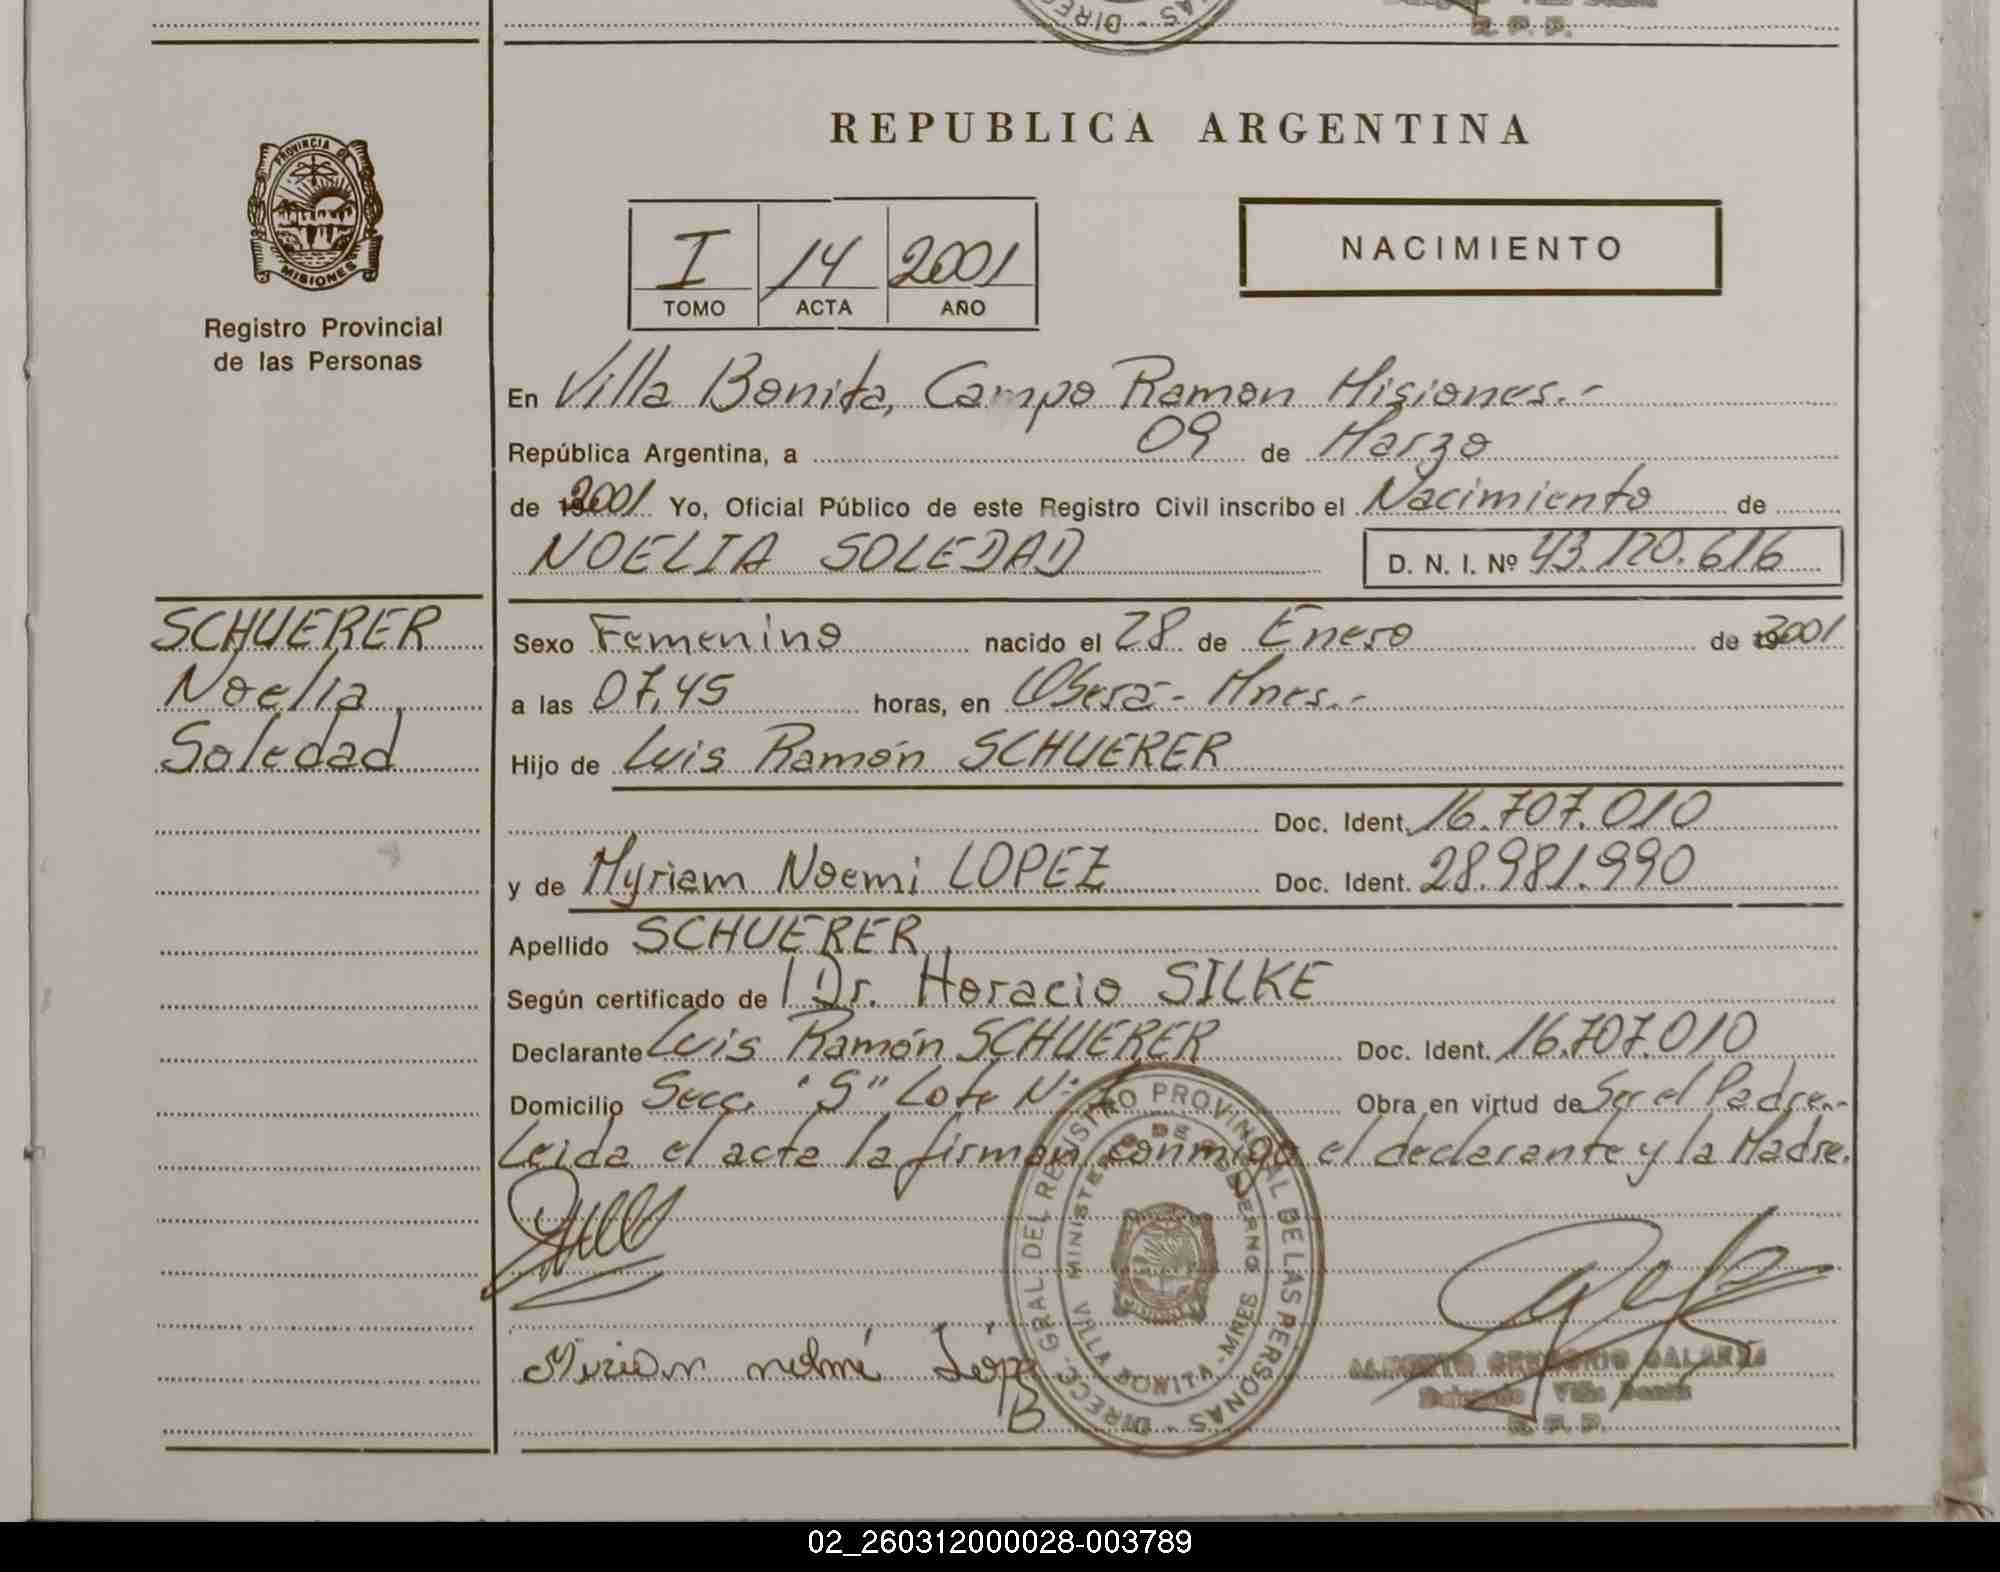 R. P. P.
REPUBLICA ARGENTINA
PROVINCIA DE
MISIONES
Registro Provincial
de las Personas
I 14 2001
TOMO ACTA AÑO
NACIMIENTO
En Villa Bonita, Campo Ramon Misiones.-
República Argentina, a 09 de Marzo
de 2001 Yo, Oficial Público de este Registro Civil inscribo el Nacimiento de
NOELIA SOLEDAD D. N. I. Nº 43.120.616
SCHUERER
Noelia
Soledad
Sexo Femenino nacido el 28 de Enero de 2001
a las 07,45 horas, en Oberá - Mnes.-
Hijo de Luis Ramón SCHUERER
Doc. Ident. 16.707.010
y de Myriam Noemi LOPEZ Doc. Ident. 28.981.990
Apellido SCHUERER
Según certificado de Dr. Horacio SILKE
Declarante Luis Ramón SCHUERER Doc. Ident. 16.707.010
Domicilio Secc. "S" Lote Nº Obra en virtud de Ser el Padre.-
Leida el acta la firman conmigo el declarante y la Madre.
DIRECC. GRAL. DEL REGISTRO PROVINCIAL DE LAS PERSONAS -
MINISTERIO DE GOBIERNO
VILLA BONITA - MNES
Lópe
B
ALBERTO GREGORIO GALARZA
Delegado Villa Bonita
R. P. P.
02_260312000028-003789